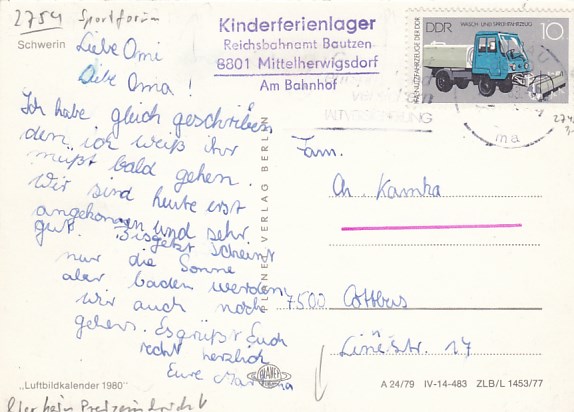 2754 Sportforum
Schwerin
Liebe Omi
Libe Oma!
Ich habe gleich geschrieben
den ich weiß ihr
müßt bald gehen.
Wir sind heute erst
angekommen und sehr
gut. Bisjetzt scheint
nur die Sonne
aber baden werden
wir auch noch
gehen. Es grüßt Euch
recht herzlich
Eure
„Luftbildkalender 1980"
Kinderferienlager
Reichsbahnamt Bautzen
8801 Mittelherwigsdorf
Am Bahnhof
DDR
WASCH- UND SPRITZFAHRZEUG
10
NUTZFAHRZEUGE DER DDR
PLANET-VERLAG BERLIN
Fam.
Ch. Kamka
7500 Cottbus
Linéstr. 17
PLANET
A 24/79 IV-14-483 ZLB/L 1453/77